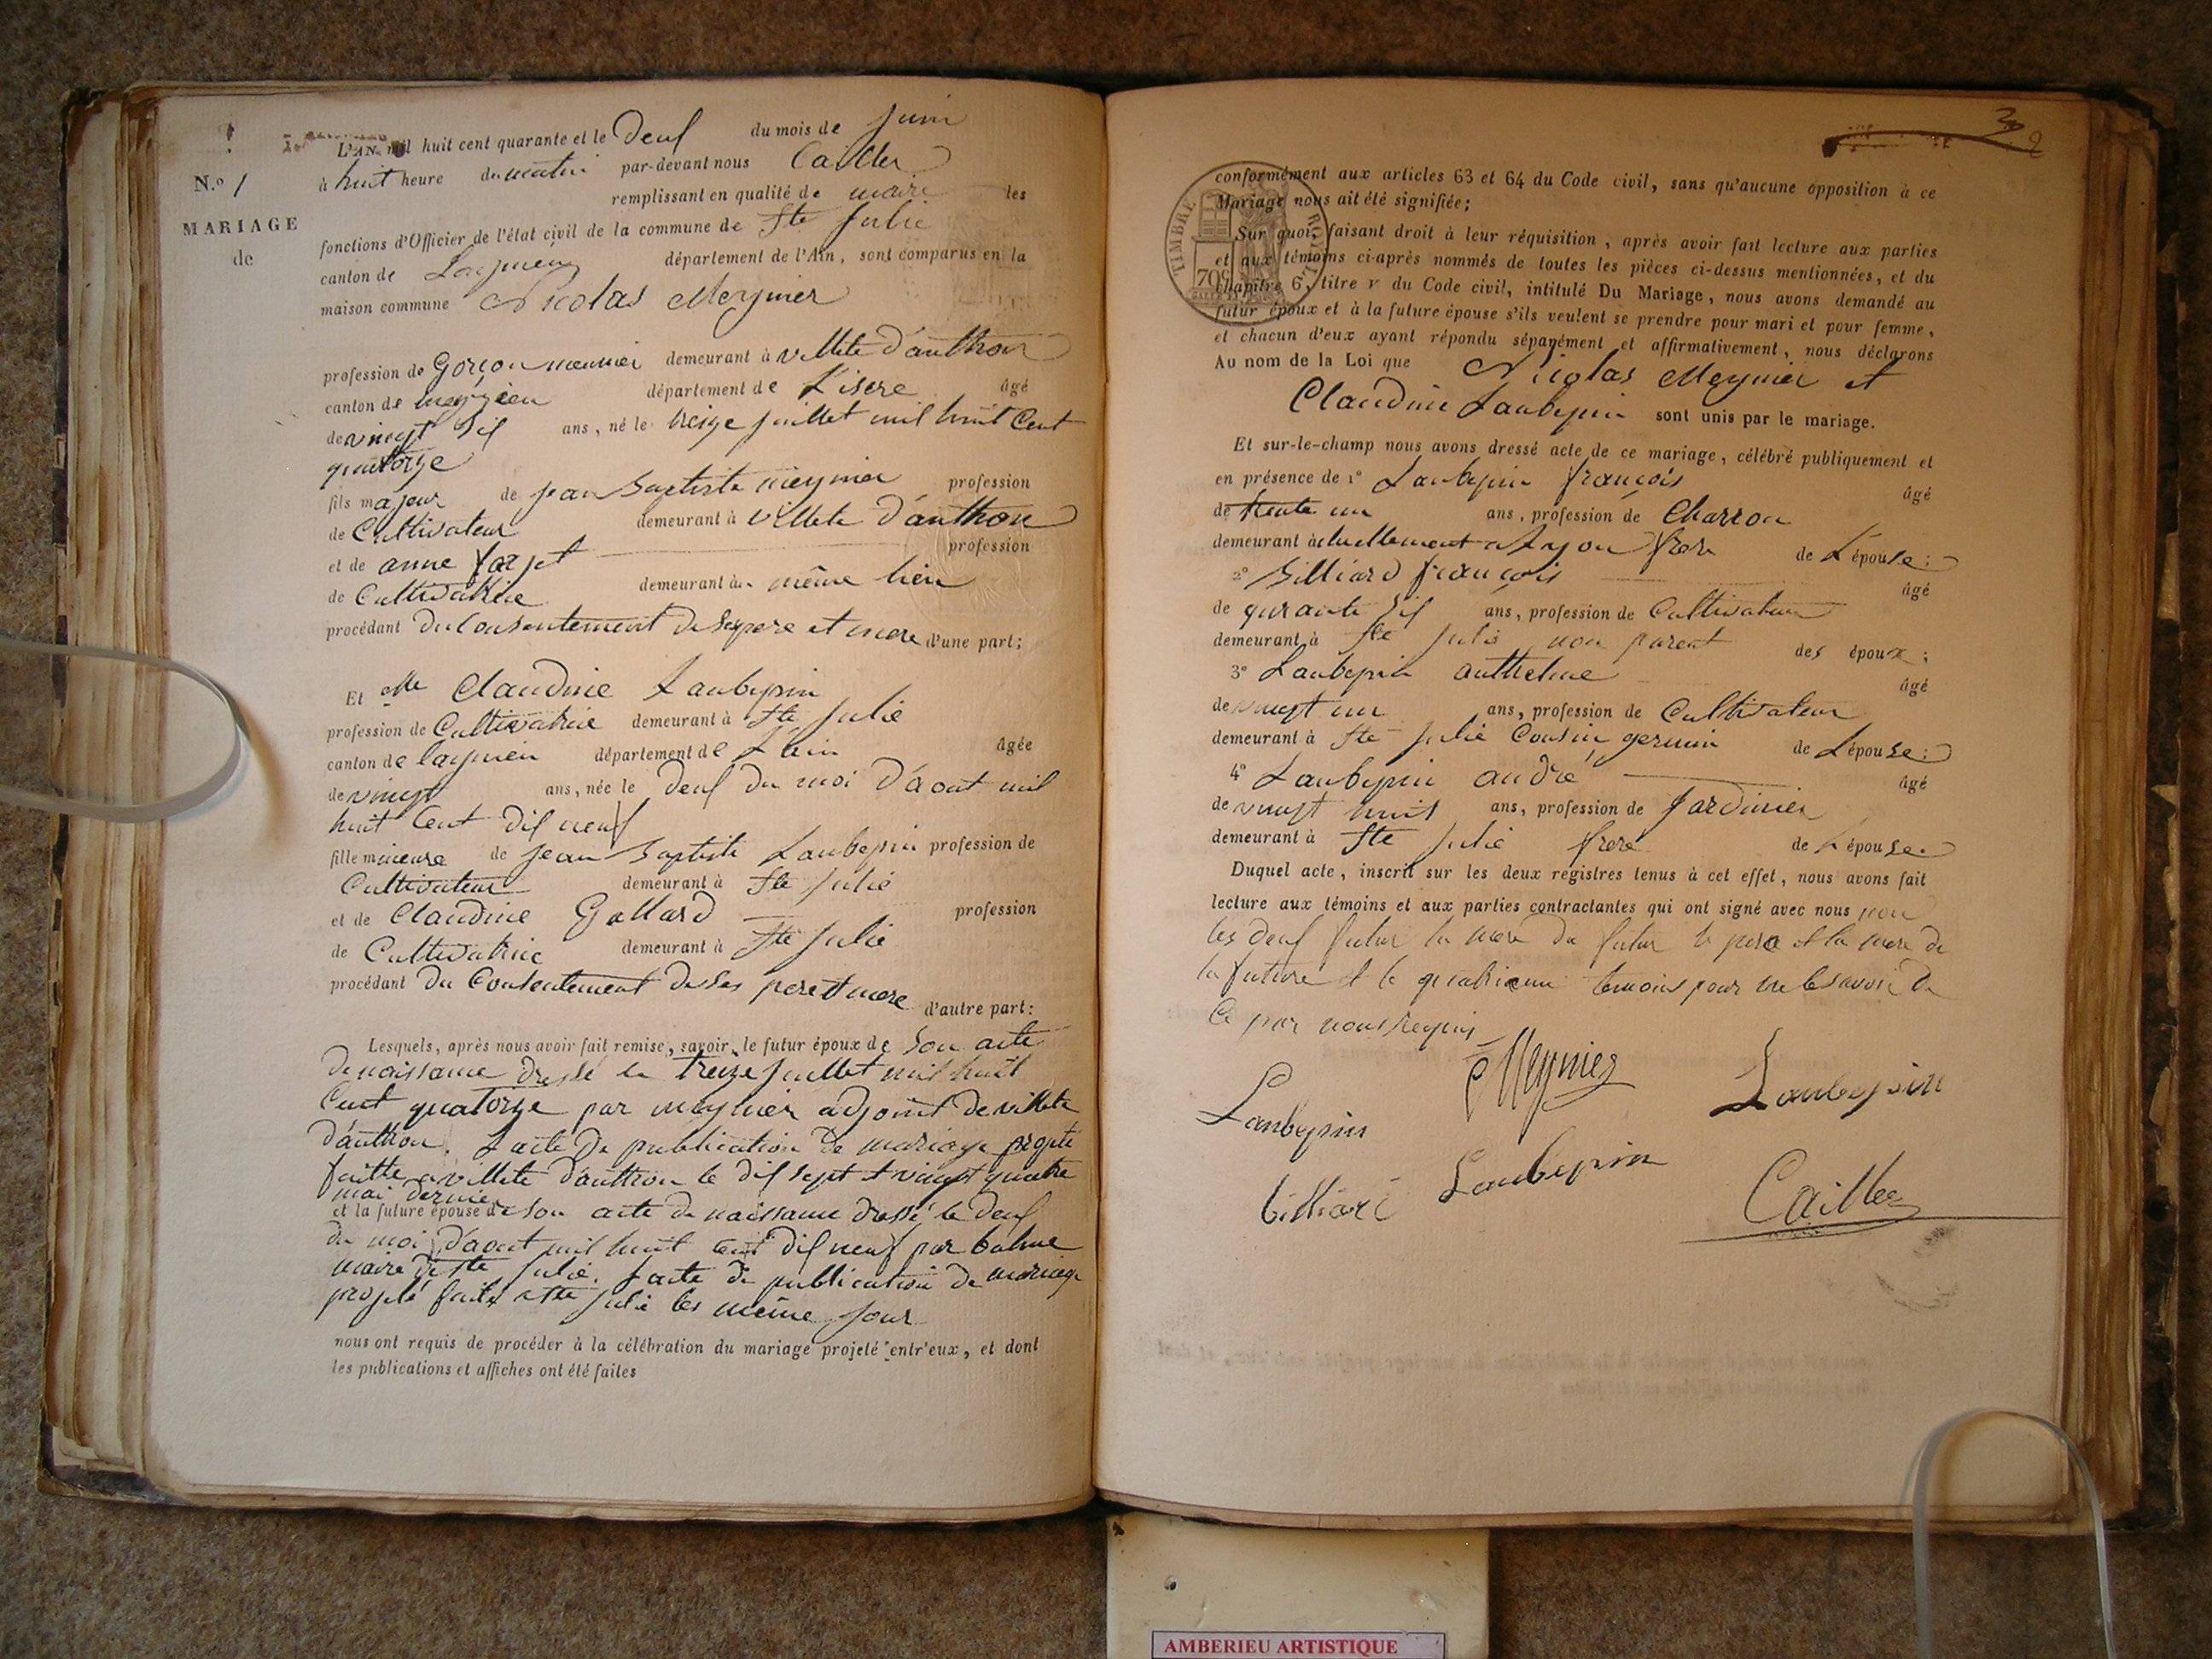 N.º 1
MARIAGE
de
L'AN mil huit cent quarante et le deux du mois de juin
à huit heure du matin par-devant nous Cailler
remplissant en qualité de maire les
fonctions d'Officier de l'état civil de la commune de Ste Julie
canton de Lagnieu département de l'Ain, sont comparus en la
maison commune Nicolas Meynier
profession de Garçon meunier demeurant à villete d'anthon
canton de meyzieu département de L'isere âgé
de vingt six ans, né le treize juillet mil huit Cent
quatorze
fils majeur de jean Baptiste meynier profession
de Cultivateur demeurant à villete d'anthon
et de anne profession
de Cultivatrice demeurant au même lieu
procédant du Consentement de ses pere et mere d'une part;
Et elle Claudine Laubepin
profession de Cultivatrice demeurant à Ste Julie
canton de lagnieu département de L'ain âgée
de vingt ans, née le deux du moi d'aout mil
huit Cent dix neuf
fille mineure de jean Baptiste Laubepin profession de
Cultivateur demeurant à Ste Julie
et de Claudine Gallard profession
de Cultivatrice demeurant à Ste Julie
procédant du Consentement de ses pere et mere d'autre part:
Lesquels, après nous avoir fait remise, savoir, le futur époux de son acte
de naissance dressé le treize juillet mil huit
Cent quatorze par meynier adjoint de villete
d'anthon. L'acte de publication de mariage projeté
faitte a villete d'anthon le dix sept et vingt quatre
mai dernier
et la future épouse de son acte de naissance dressé le deux
du moi d'aout mil huit cent dix neuf par balme
maire de Ste Julie. L'acte de publication de mariage
projeté faite a Ste Julie les même jour
nous ont requis de procéder à la célébration du mariage projeté entr'eux, et dont
les publications et affiches ont été faites
2
TIMBRE ROYAL
70c
conformément aux articles 63 et 64 du Code civil, sans qu'aucune opposition à ce
Mariage nous ait été signifiée;
Sur quoi, faisant droit à leur réquisition, après avoir fait lecture aux parties
et aux témoins ci-après nommés de toutes les pièces ci-dessus mentionnées, et du
chapitre 6, titre v du Code civil, intitulé Du Mariage, nous avons demandé au
futur époux et à la future épouse s'ils veulent se prendre pour mari et pour femme,
et chacun d'eux ayant répondu séparément et affirmativement, nous déclarons
Au nom de la Loi que Nicolas Meynier et
Claudine Laubepin sont unis par le mariage.
Et sur-le-champ nous avons dressé acte de ce mariage, célébré publiquement et
en présence de 1º Laubepin françois âgé
de trente un ans, profession de Charron
demeurant actuellement a Lyon frere de L'épouse;
2º Billiard françois âgé
de qurante six ans, profession de Cultivateur
demeurant à Ste Julie non parent des époux;
3º Laubepin anthelme âgé
de vingt un ans, profession de Cultivateur
demeurant à Ste Julie Cousin germin de L'épouse;
4º Laubepin andré âgé
de vingt huit ans, profession de Jardinier
demeurant à Ste Julie frere de L'épouse.
Duquel acte, inscrit sur les deux registres tenus à cet effet, nous avons fait
lecture aux témoins et aux parties contractantes qui ont signé avec nous non
les deux futur la mere du futur le pere et la mere de
la future et le quatrieme temoins pour ne le savoir de
Ce par nous requis
Meynier
Laubepin
Laubepin
billiard
Laubepin
Cailler
AMBERIEU ARTISTIQUE